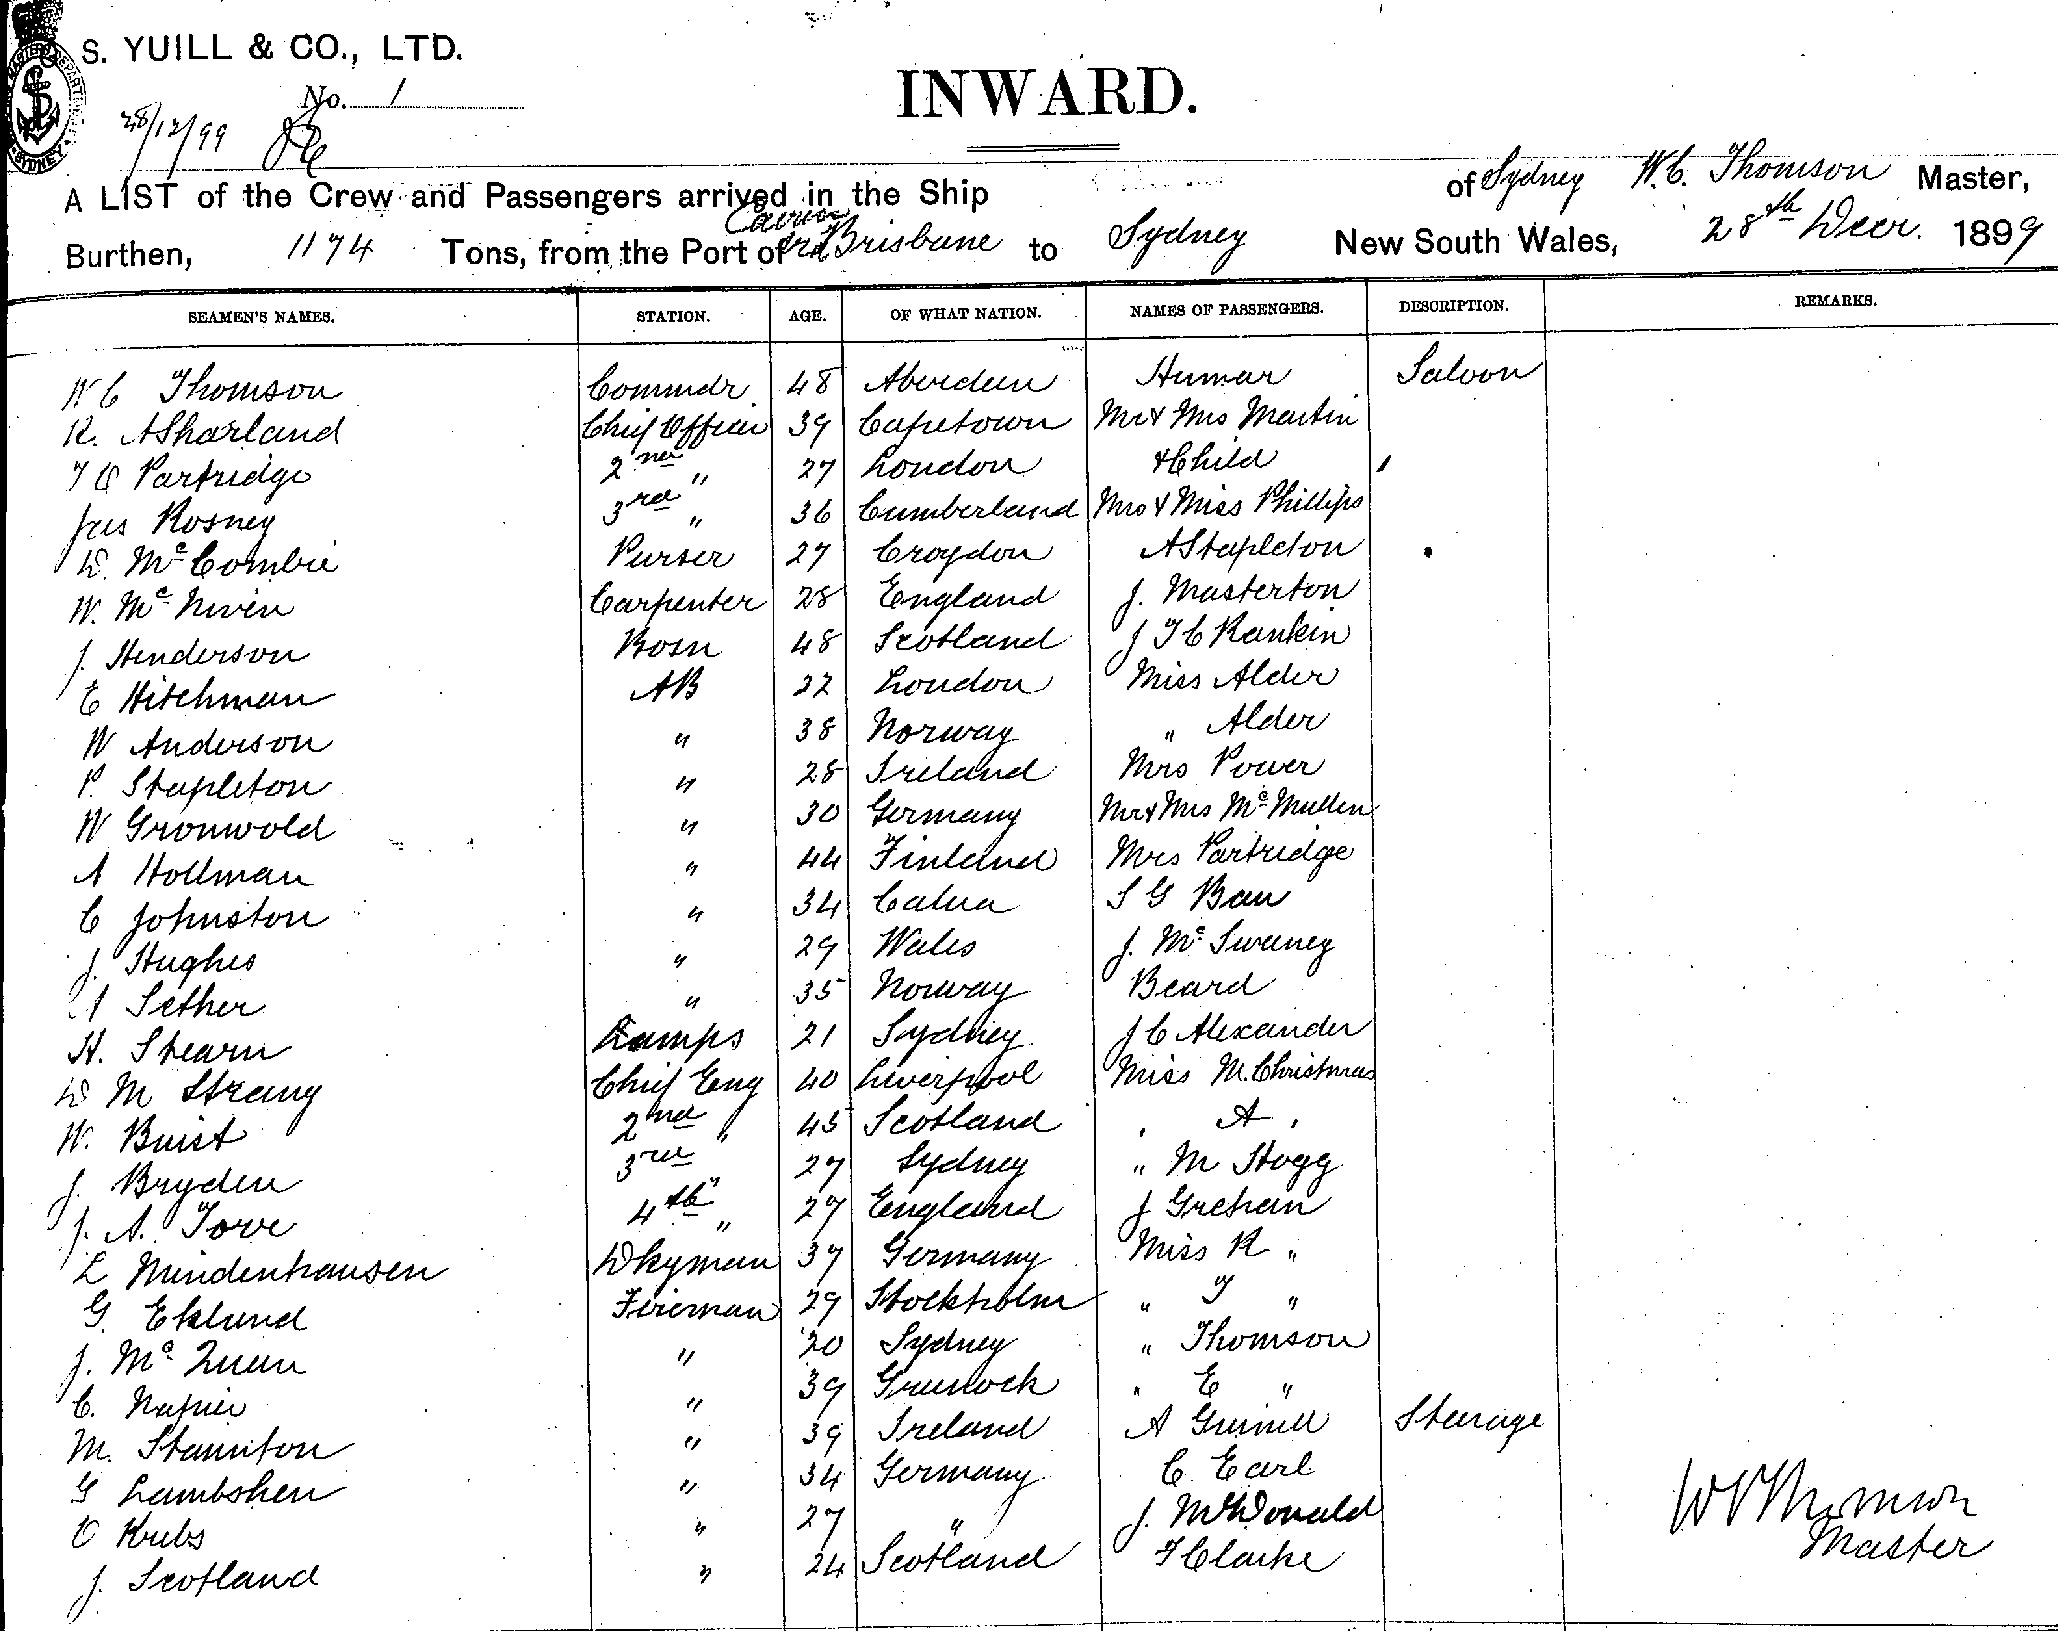 S. YUILL & CO., LTD.
No. 1
28/12/99
INWARD.
A LIST of the Crew and Passengers arrived in the Ship of Sydney W. C. Thomson Master,
Burthen, 1174 Tons, from the Port of Brisbane to Sydney New South Wales, 28th Decr. 1899
SEAMEN'S NAMES. STATION. AGE. OF WHAT NATION. NAMES OF PASSENGERS. DESCRIPTION. REMARKS.
W C Thomson Commdr 48 Aberdeen Humar Saloon
R. A Sharland Chief Officer 39 Capetown Mr & Mrs Martin
T C Partridge 2nd " 27 London & Child
Jas Rosney 3rd " 36 Cumberland Mrs & Miss Phillips
D. McCombie Purser 27 Croydon A Stapleton
W. McNiven Carpenter 28 England J. Masterton
J. Henderson Bosn 48 Scotland J T C Rankin
E Hitchman AB 22 London Miss Alder
W Anderson " 38 Norway " Alder
P. Stapleton " 28 Ireland Mrs Power
W Gronwold " 30 Germany Mr & Mrs McMullen
A Hollman " 44 Finland Mrs Partridge
C Johnston " 34 S G
J. Hughes " 29 Wales J. McSweeney
A Sether " 35 Norway Beard
H. Stearn Lamps 21 Sydney J C Alexander
D M Strang Chief Eng 40 Liverpool Miss M. Christmas
W. Buist 2nd " 45 Scotland " A "
J. Bryden 3rd " 27 Sydney " M Hogg
J. A. Torre 4th " 27 England J Graham
L Mindenhausen Dkyman 37 Germany Miss R "
G. Eklund Fireman 29 Stockholm " T "
J. McQueen " 20 Sydney " Thomson
C. Napier " 39 Greenock " E "
M. Staunton " 39 Ireland A Steerage
G Lambshen " 34 Germany C. Earl
O Krebs " 27 " J. McDonald
J. Scotland " 24 Scotland F Clarke
W C Thomson
Master